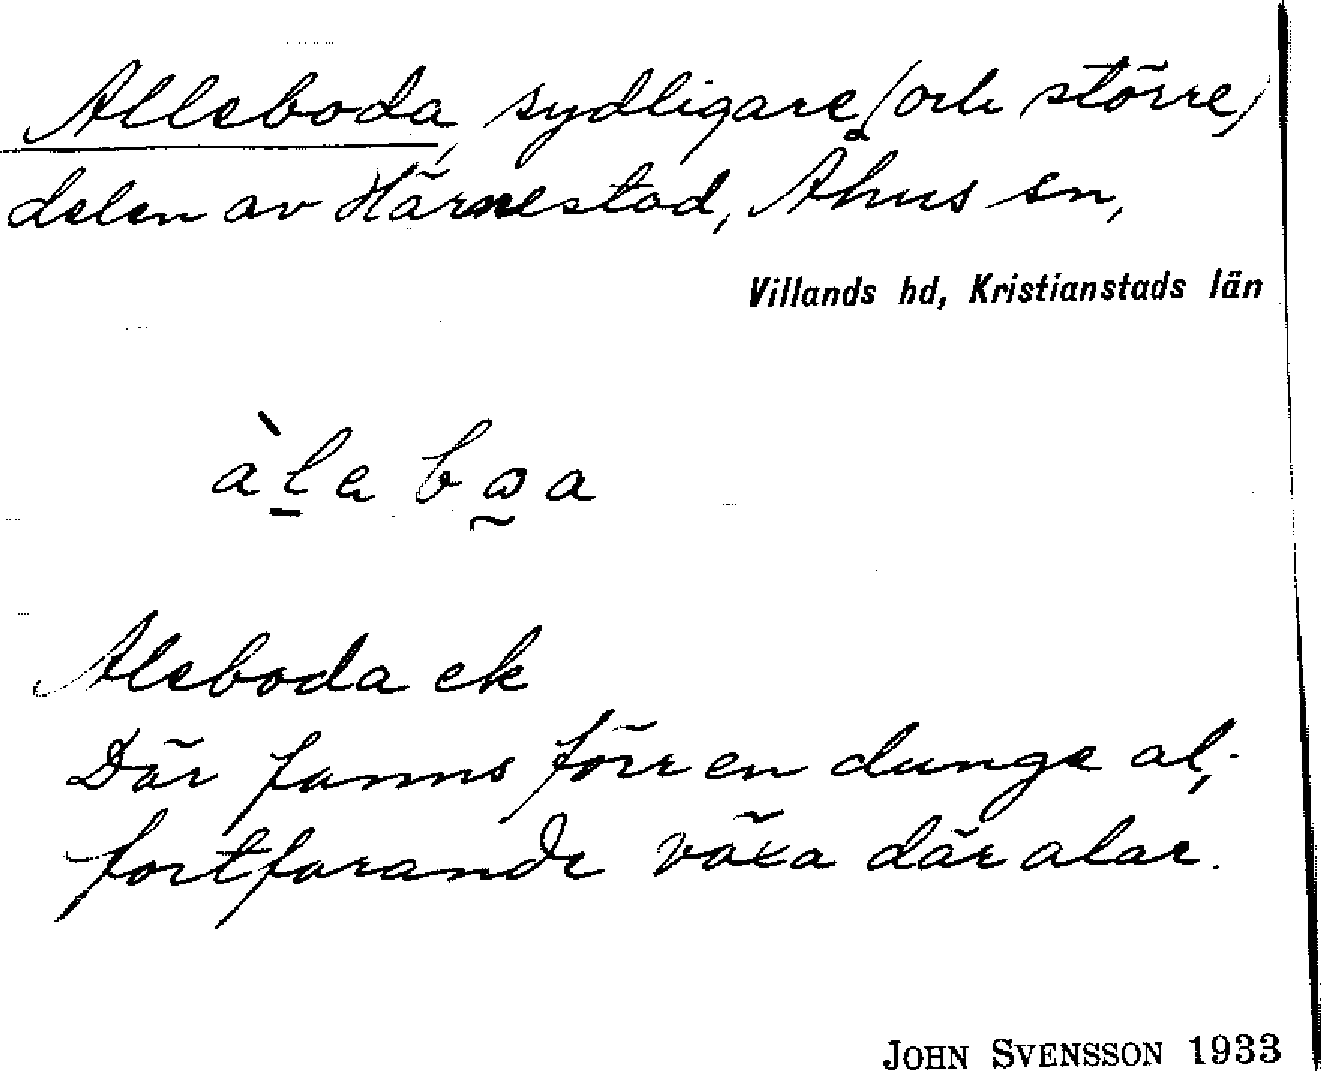 Alleboda, sydligare (och större)
delen av Härnestad, Åhus sn,
Villands hd, Kristianstads län
Aleboda ek
Där fanns förr en dunge al;
fortfarande växa där alar.
JOHN SVENSSON 1933